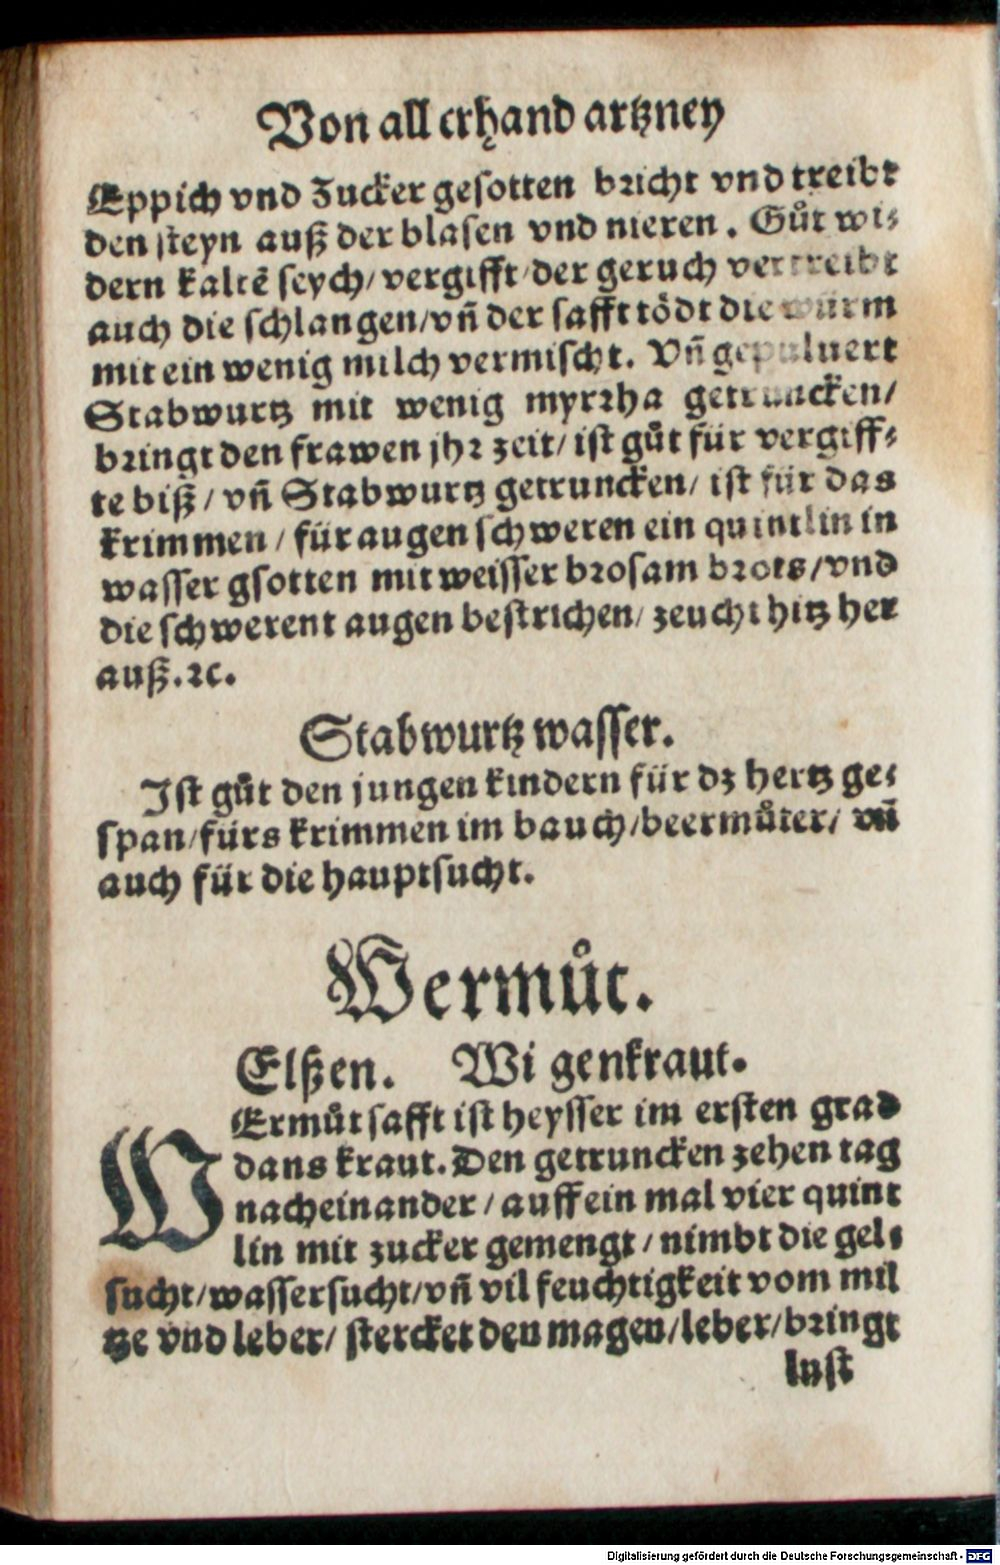 Von allerhand artzney
Eppich vnd Zucker gesotten bricht vnd treibt
den steyn auß der blasen vnd nieren. Gůt wi⸗
dern kaltē seych/ vergifft/ der geruch vertreibt
auch die schlangen/ vñ der safft tödt die würm
mit ein wenig milch vermischt. Vñ gepuluert
Stabwurtz mit wenig myrrha getruncken/
bringt den frawen jhr zeit/ ist gůt für vergiff⸗
te biß/ vñ Stabwurtz getruncken/ ist für das
krimmen/ für augen schweren ein quintlin in
wasser gsotten mit weisser brosam brots/ vnd
die schwerent augen bestrichen/ zeucht hitz her
auß. ꝛc.
Stabwurtz wasser.
Ist gůt den jungen kindern für dz hertz ge⸗
span/ fürs krimmen im bauch/ beermůter/ vñ
auch für die hauptsucht.
Wermůt.
Elßen. Wigenkraut.
WErmůt safft ist heysser im ersten grad
dans kraut. Den getruncken zehen tag
nacheinander/ auff ein mal vier quint
lin mit zucker gemengt/ nimbt die gel⸗
sucht/ wassersucht/ vñ vil feuchtigkeit vom mil
tze vnd leber/ stercket den magen/ leber/ bringt
lust
Digitalisierung gefördert durch die Deutsche Forschungsgemeinschaft - DFG